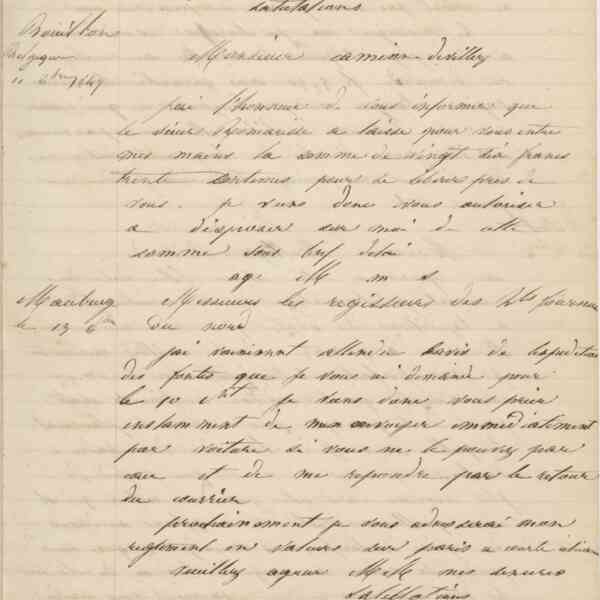 Salutations
Bouillon
Belgique
11 1847
Monsieur camion devilley
j'ai l'honneur de vous informer que
le sieur a laissé pour vous entre
mes mains la somme de vingt dix francs
trente centimes pour se liberer pres de
vous. je viens donc vous autoriser
a disposer sur moi de cette
somme sous bref delai
ag. M m s
Maubeuge Messieurs les regisseurs des hts fourneaux
le 13 du nord
j'ai vainement attendu l'avis de l'expedition
des fontes que je vous ai demandé pour
le 10 je viens donc vous prier
instamment de m'en envoyer immediatement
par voiture si vous ne le pouvez par
eau et de me repondre par le retour
du courrier
prochainement je vous adresserai mon
reglement en valeurs sur paris a courte
veuillez agreer MM mes sinceres
Salutations